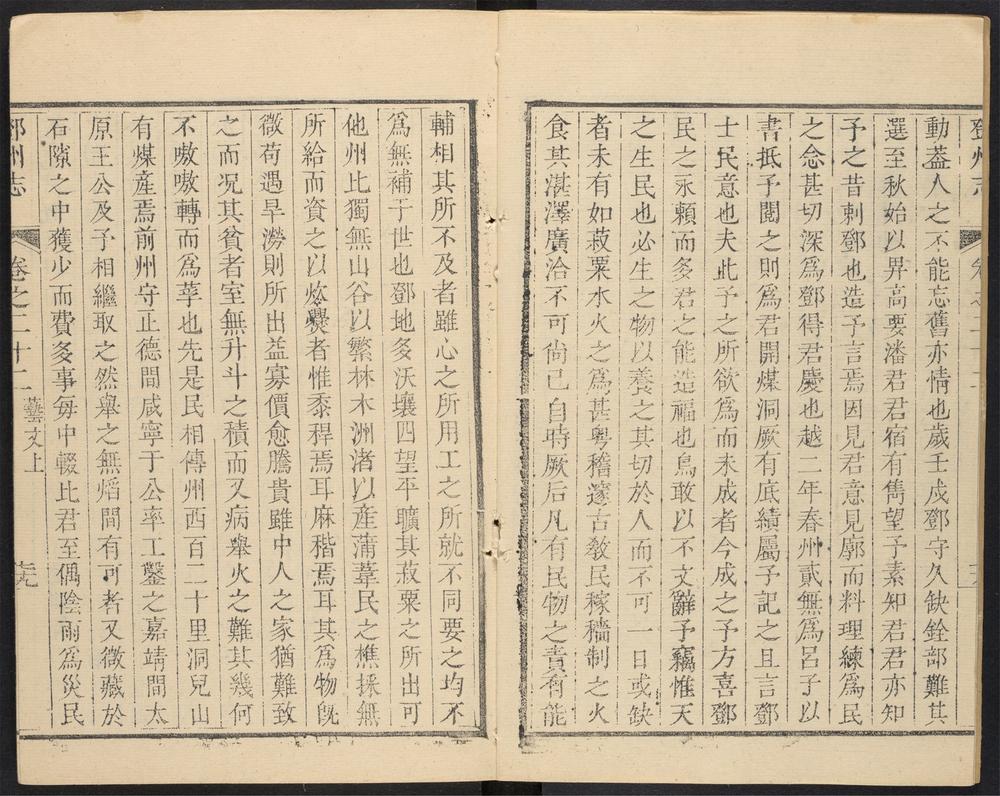 鄧州志
動蓋人之不能忘舊亦情也歲壬戍鄧守久缺銓部難其
選至秋始以畀高要潘君君宿有雋望予素知君君亦知
予之昔刺鄧也造予言焉因見君意見廓而料理練爲民
之念甚切深爲鄧得君慶也越二年春州貳無爲呂子以
書抵予閱之則爲君開煤洞厥有底績屬予記之且言鄧
士民意也夫此予之所欲爲而未成者今成之予方喜鄧
民之永賴而多君之能造福也烏敢以不文辭予竊惟天
之生民也必生之物以養之其切於人而不可一日或缺
者未有如菽粟水火之爲甚粵稽邃古教民稼穡制之火
食其湛澤廣洽不可尙已自時厥后凡有民物之責有能
輔相其所不及者雖心之所用工之所就不同要之均不
爲無補于世也鄧地多沃壤四望平曠其菽粟之所出可
他州比獨無山谷以繁林木洲渚以產蒲葦民之樵採無
所給而資之以炊爨者惟黍稈焉耳麻稭焉耳其爲物旣
微苟遇旱澇則所出益寡價愈騰貴雖中人之家猶難致
之而况其貧者室無升斗之積而又病舉火之難其幾何
不嗷嗷轉而爲莩也先是民相傳州西百二十里洞兒山
有煤產焉前州守正德間咸寧于公率工鑿之嘉靖間太
原王公及予相繼取之然舉之無熖間有可者又微藏於
石隙之中獲少而費多事每中輟比君至偶陰雨爲災民
鄧州志 卷之二十二 藝文上